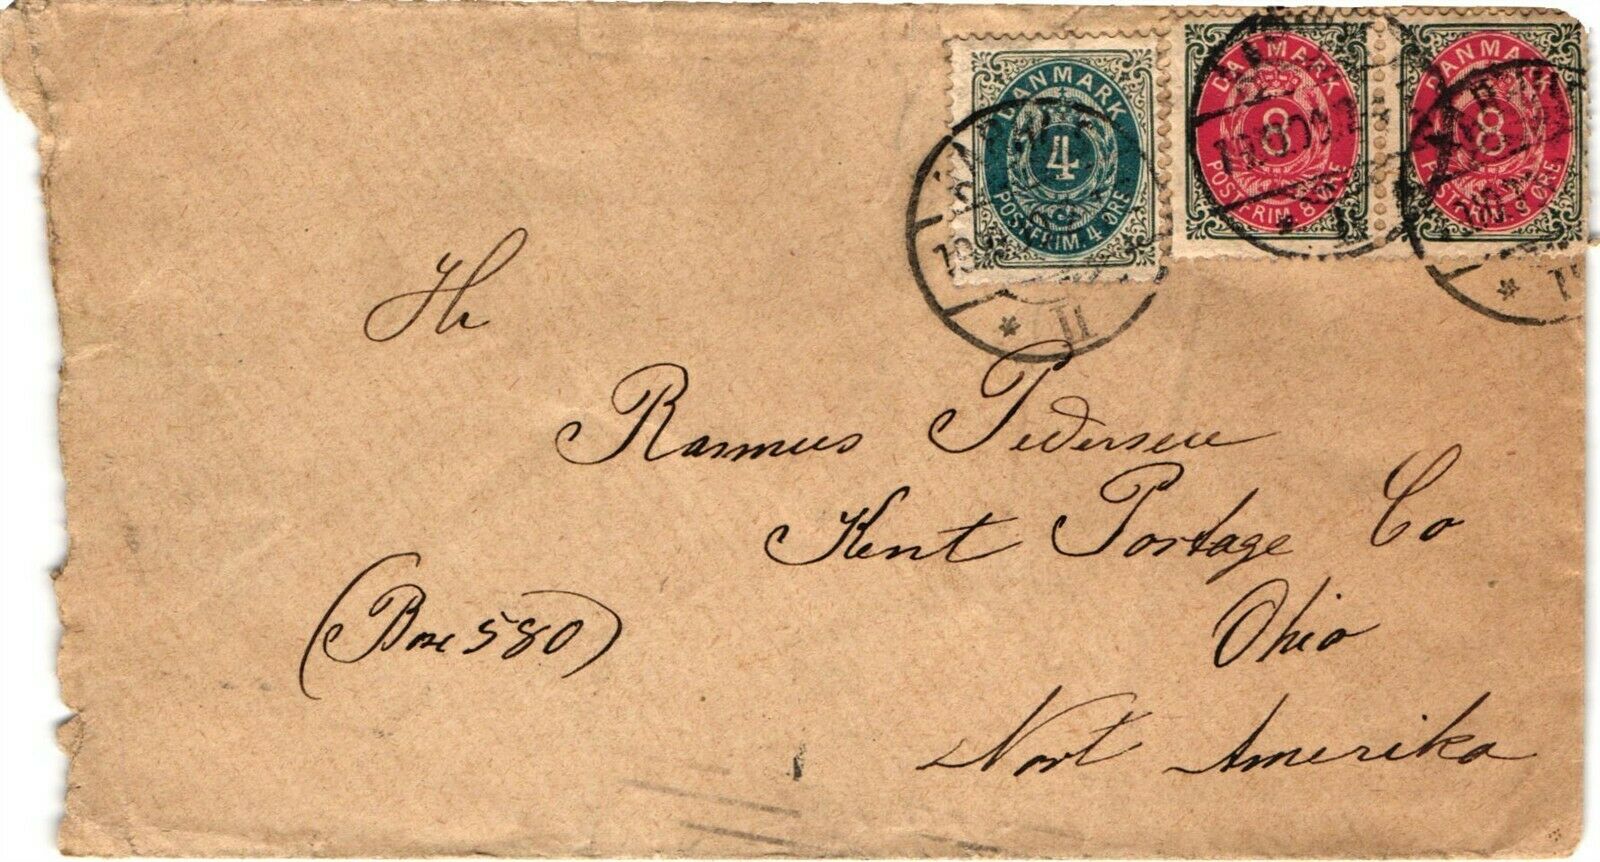 DANMARK
4
POSTFRIM. 4 ØRE
DANMARK
8
POSTFRIM. 8 ØRE
DANMARK
8
POSTFRIM. 8 ØRE
Hr
Rasmus Pedersen
Kent Portage Co
(Box 580)
Ohio
Nort Amerika